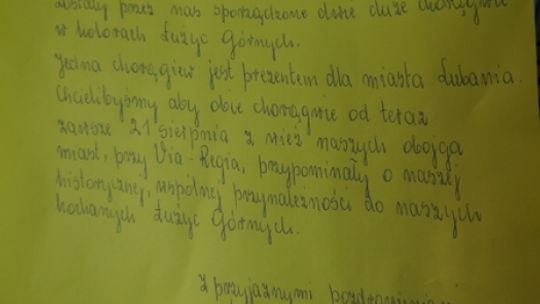 zostały przez nas sporządzone dwie duże chorągwie
w kolorach Łużyc Górnych.
Jedna chorągiew jest prezentem dla miasta Lubania.
Chcielibyśmy aby obie chorągwie od teraz
zawsze 21 sierpnia z wież naszych obojga
miast, przy Via-Regia, przypominały o naszej
historycznej, wspólnej przynależności do naszych
kochanych Łużyc Górnych.
z przyjaznymi pozdrowieniami